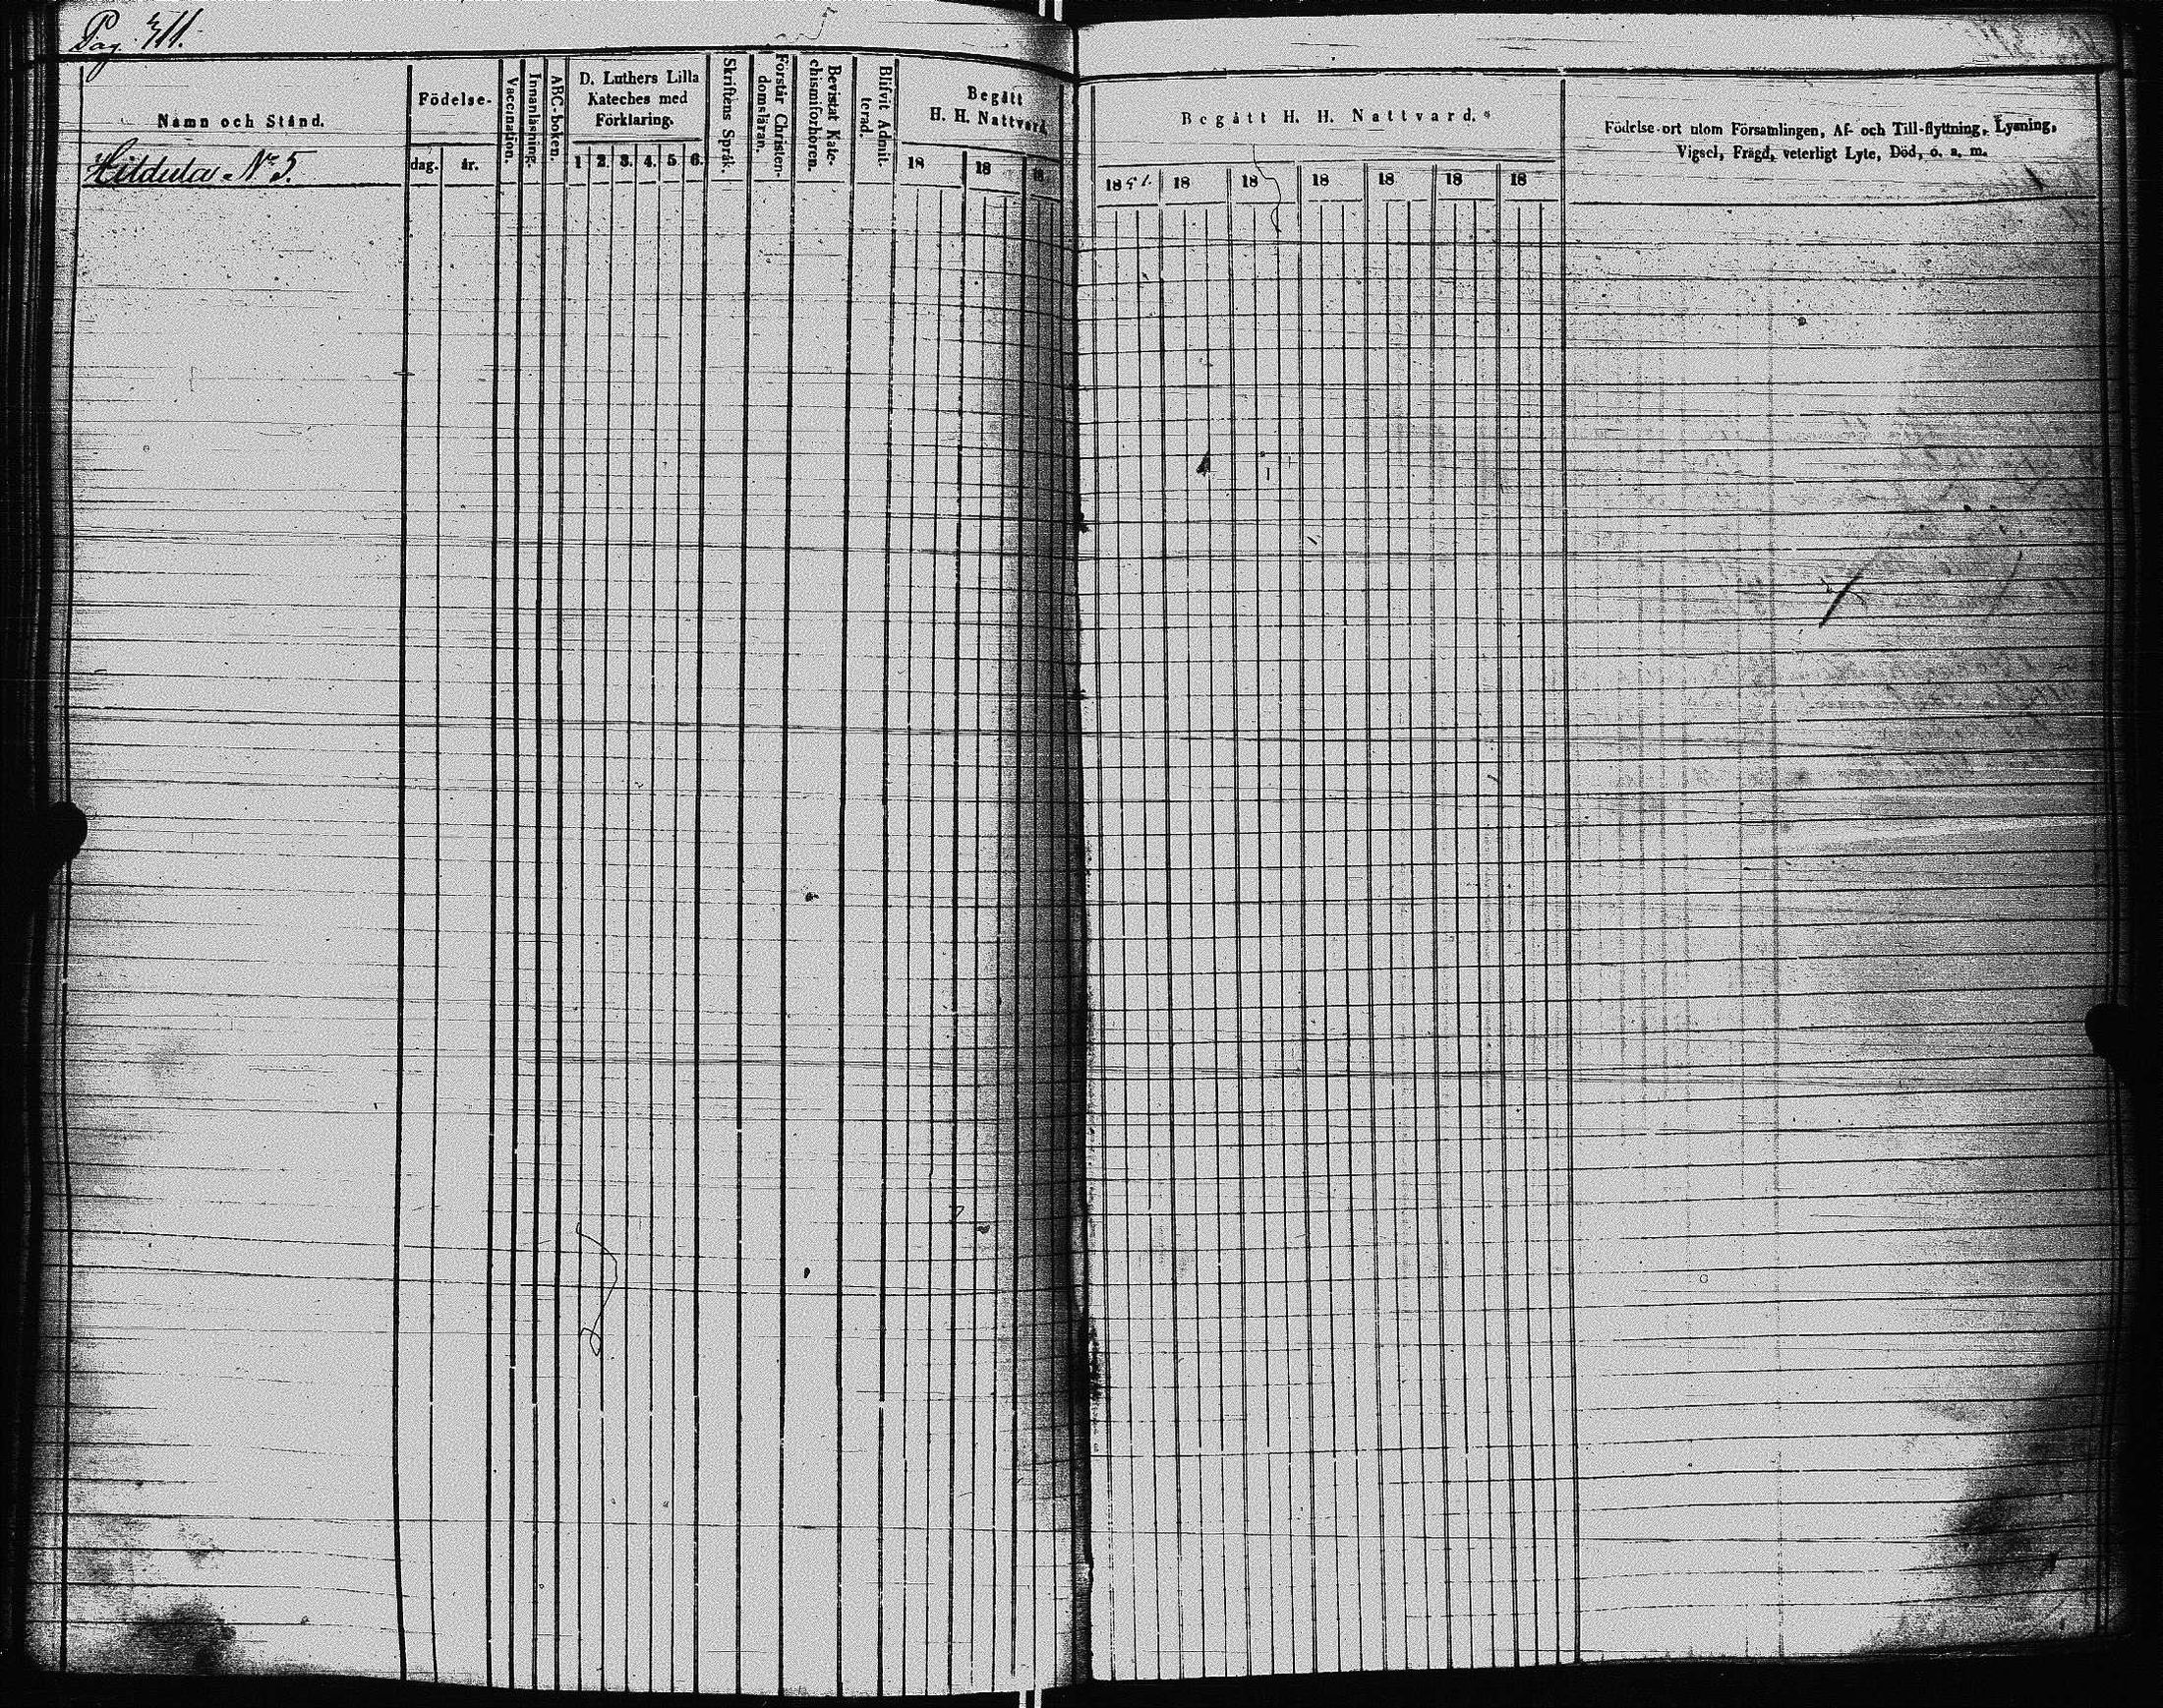 Pag. 311.
Namn och Stånd.
Hildula N:o 5.
Födelse-
dag.
år.
Vaccination.
Innanläsning.
ABC-boken.
D. Luthers Lilla
Kateches med
Förklaring.
1 2. 3. 4. 5. 6.
Skriftens Språk.
Förstår Christen-
domsläran.
Bevistat Kate-
chismiförhören.
Blifvit Admit-
terad.
Begått
H. H. Nattvard.
18 18 18
Begått H. H. Nattvard.
1851. 18 18 18 18 18 18
Födelse-ort utom Församlingen, Af- och Till-flyttning, Lysning,
Vigsel, Frägd, veterligt Lyte, Död, o. s. m.